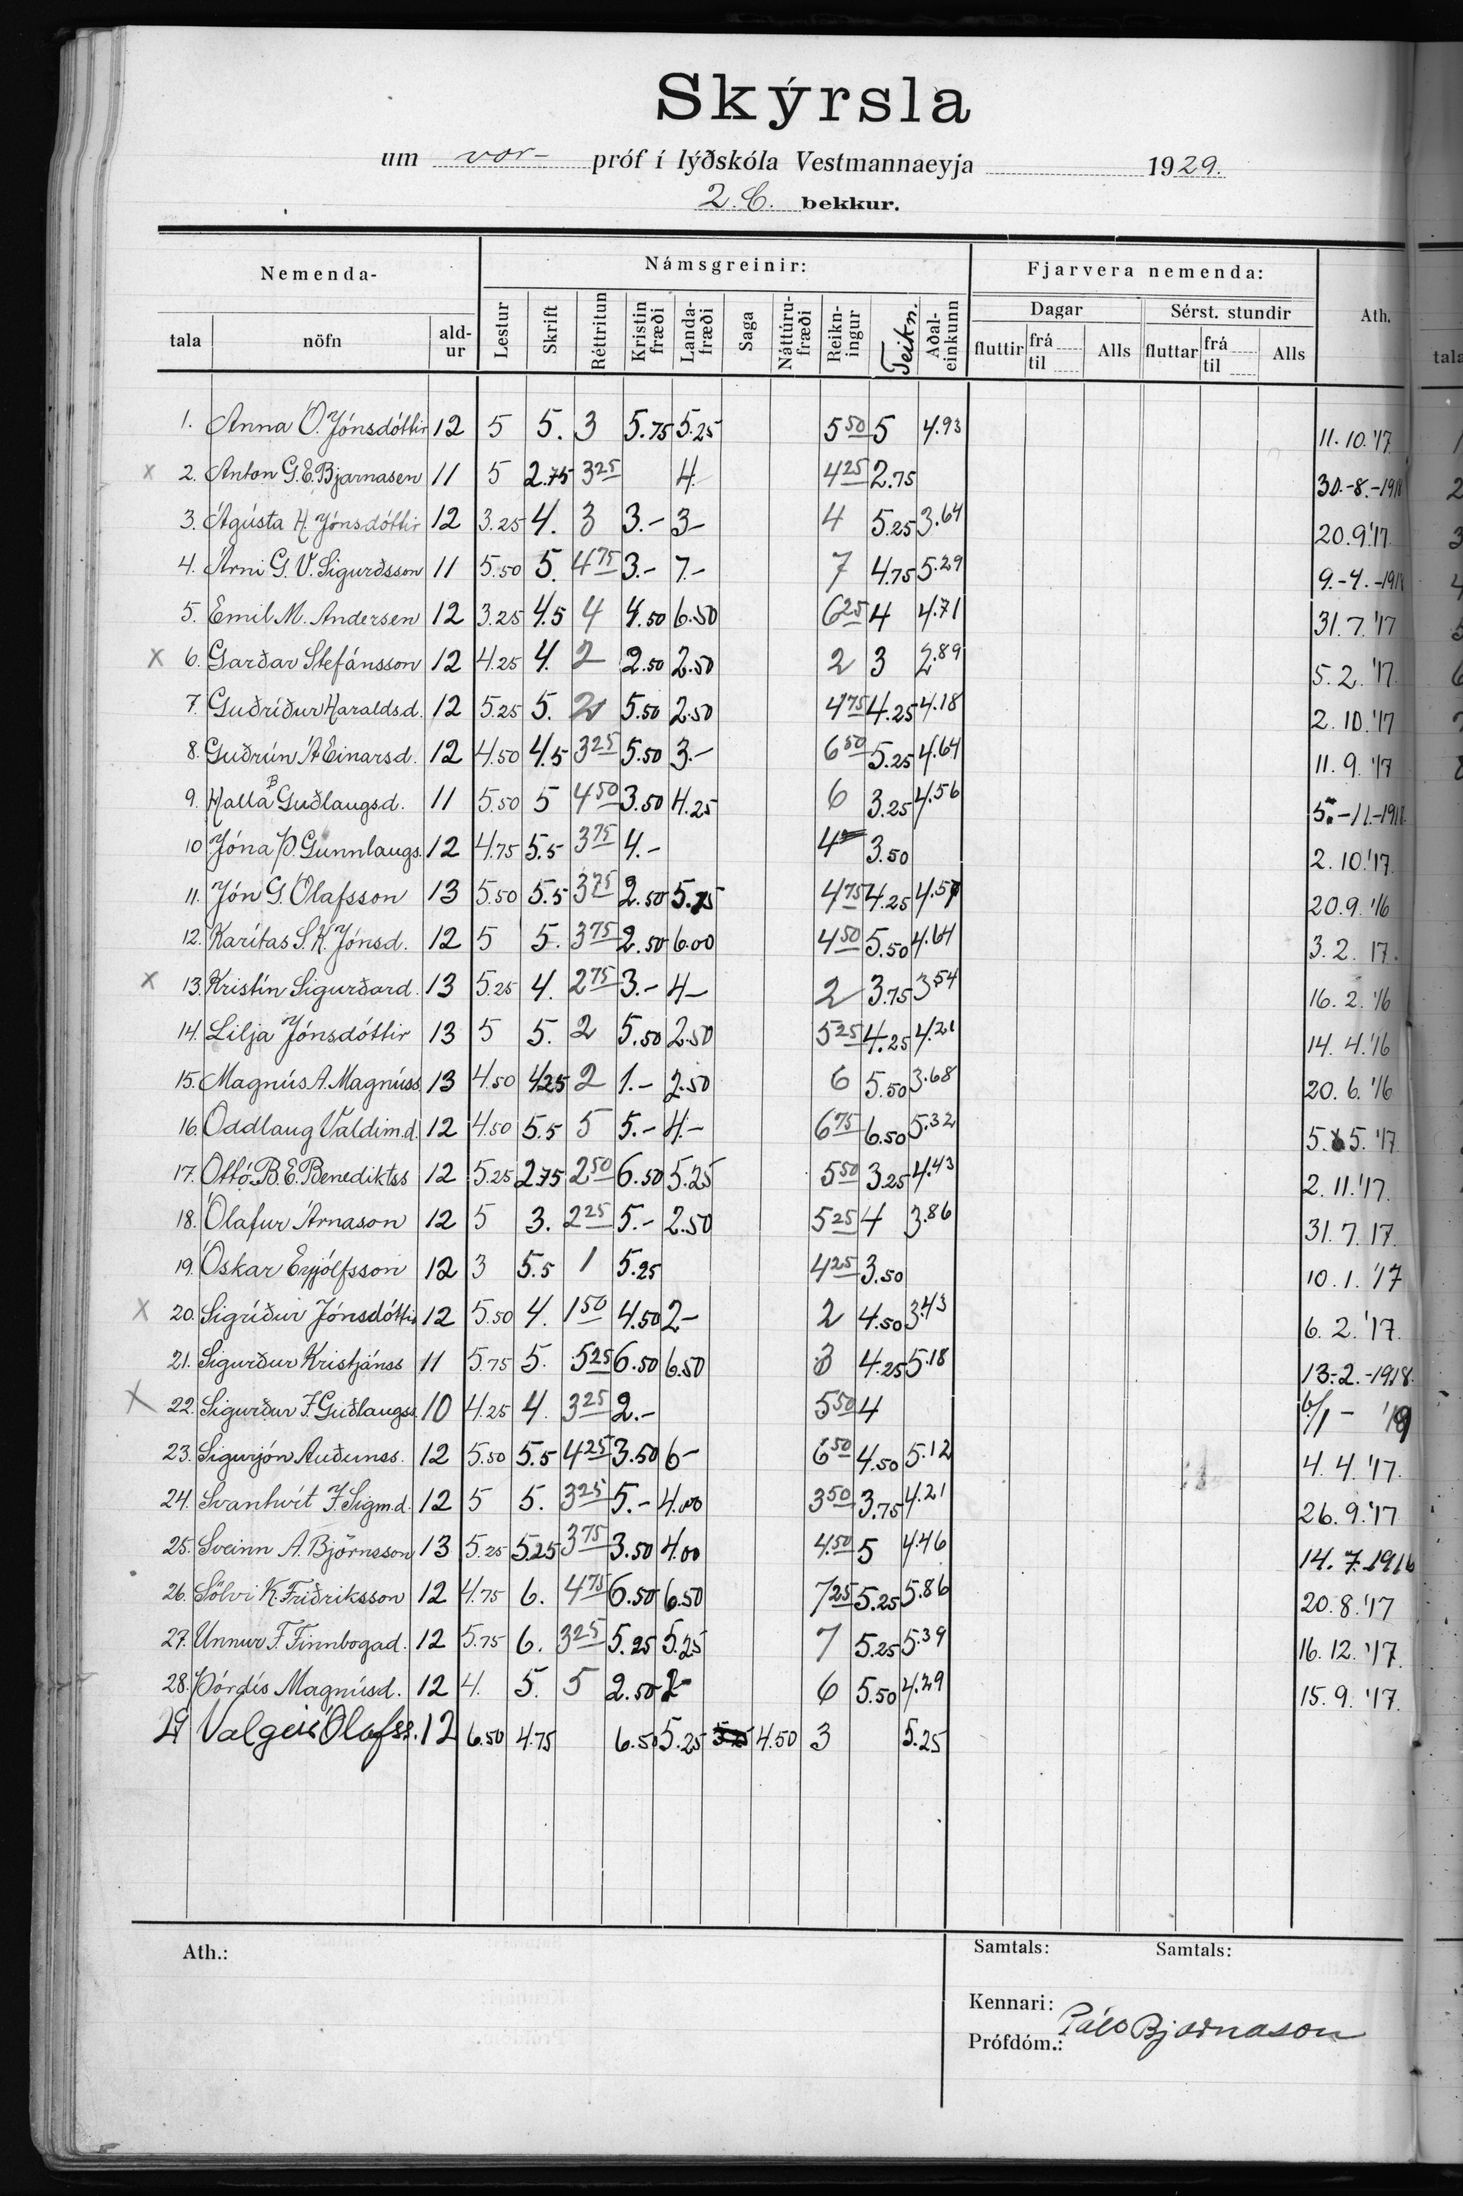 Skýrsla
um vor- próf í lýðskóla Vestmannaeyja 1929.
2. C. bekkur.
Nemenda- Námsgreinir: Fjarvera nemenda: Ath.
Dagar Sérst. stundir
tala nöfn ald-ur Lestur Skrift Réttritun Kristin fræði Landa-fræði Saga Náttúru-fræði Reikn-ingur Teikn. Aðal-einkunn fluttir frá til Alls fluttar frá til Alls
1. Anna Ó. Jónsdóttir 12 5 5. 3 5.75 5.25 5 50 5 4.93 11.10.'17
x 2. Anton G. E. Bjarnasen 11 5 2.75 3 25 4. 4 25 2.75 30.-8.-1918
3. Ágústa H. Jónsdóttir 12 3.25 4. 3 3.- 3- 4 5.25 3.64 20.9.'17
4. Árni G. V. Sigurðsson 11 5.50 5. 4 75 3.- 7.- 7 4.75 5.29 9.-4.-1918
5. Emil M. Andersen 12 3.25 4.5 4 4.50 6.50 6 25 4 4.71 31.7.'17
x 6. Garðar Stefánsson 12 4.25 4. 2 2.50 2.50 2 3 2.89 5.2.'17.
7. Guðríður Haraldsd. 12 5.25 5. 2 5.50 2.50 4 75 4.25 4.18 2.10.'17
8. Guðrún Á Einarsd. 12 4.50 4.5 3 25 5.50 3.- 6 50 5.25 4.64 11.9.'17
9. Halla B Guðlaugsd. 11 5.50 5 4 50 3.50 4.25 6 3.25 4.56 5.-11.-1918.
10 Jóna Þ. Gunnlaugs. 12 4.75 5.5 3 75 4.- 4 3.50 2.10.'17.
11. Jón G. Ólafsson 13 5.50 5.5 3 75 2.50 5.75 4 75 4.25 4.57 20.9.'16
12. Karítas S. K. Jónsd. 12 5 5. 3 75 2.50 6.00 4 50 5.50 4.64 3.2.17.
x 13. Kristín Sigurðard. 13 5.25 4. 2 75 3.- 4- 2 3.75 3.54 16.2.'16
14. Lilja Jónsdóttir 13 5 5. 2 5.50 2.50 5 25 4.25 4.21 14.4.'16
15. Magnús A. Magnúss. 13 4.50 4.25 2 1.- 2.50 6 5.50 3.68 20.6.'16
16. Oddlaug Valdim.d. 12 4.50 5.5 5 5.- 4.- 6 75 6.50 5.32 5. 5.'17.
17. Ottó. B. E. Benediktss 12 5.25 2.75 2 50 6.50 5.25 5 50 3.25 4.43 2.11.'17.
18. Ólafur Árnason 12 5 3. 2 25 5.- 2.50 5 25 4 3.86 31.7.17.
19. Óskar Eyjólfsson 12 3 5.5 1 5.25 4 25 3.50 10.1.'17
x 20. Sigríður Jónsdóttir 12 5.50 4. 1 50 4.50 2- 2 4.50 3.43 6.2.'17.
21. Sigurður Kristjánss 11 5.75 5. 5 25 6.50 6.50 3 4.25 5.18 13.-2.-1918.
x 22. Sigurður F. Guðlaugss. 10 4.25 4. 3 25 2.- 5 50 4 6/1 - '19
23. Sigurjón Auðunss. 12 5.50 5.5 4 25 3.50 6- 6 50 4.50 5.12 4.4.'17.
24. Svanhvít F. Sigm.d. 12 5 5. 3 25 5.- 4.00 3 50 3.75 4.21 26.9.'17
25. Sveinn A. Björnsson 13 5.25 5.25 3 75 3.50 4.00 4.50 5 4.46 14.7.1916
26. Sölvi K. Friðriksson 12 4.75 6. 4 75 6.50 6.50 7 25 5.25 5.86 20.8.'17
27. Unnur F. Finnbogad. 12 5.75 6. 3 25 5.25 5.25 7 5.25 5.39 16.12.'17.
28. Þórdís Magnúsd. 12 4. 5. 5 2.50 2- 6 5.50 4.29 15.9.'17.
29 Valgeir Ólafss. 12 6.50 4.75 6.50 5.25 4.50 3 5.25
Ath.: Samtals: Samtals:
Kennari: Páll Bjarnason
Prófdóm.: